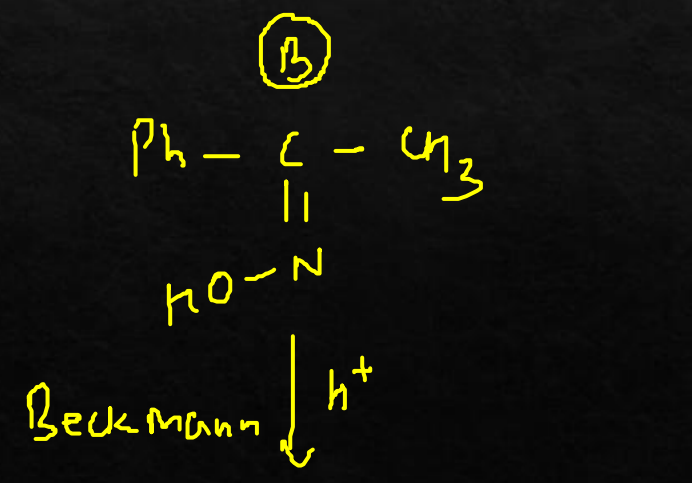 B
Ph - C - CH3
||
HO - N
h+
Beckmann